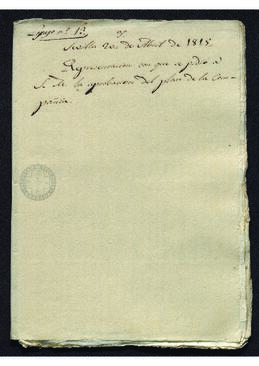 Legajo nº 13
Sevilla 20 de Abril de 1815
Representacion con que se pidio a
S. M. la aprobacion del plan de la Com-
pañia.